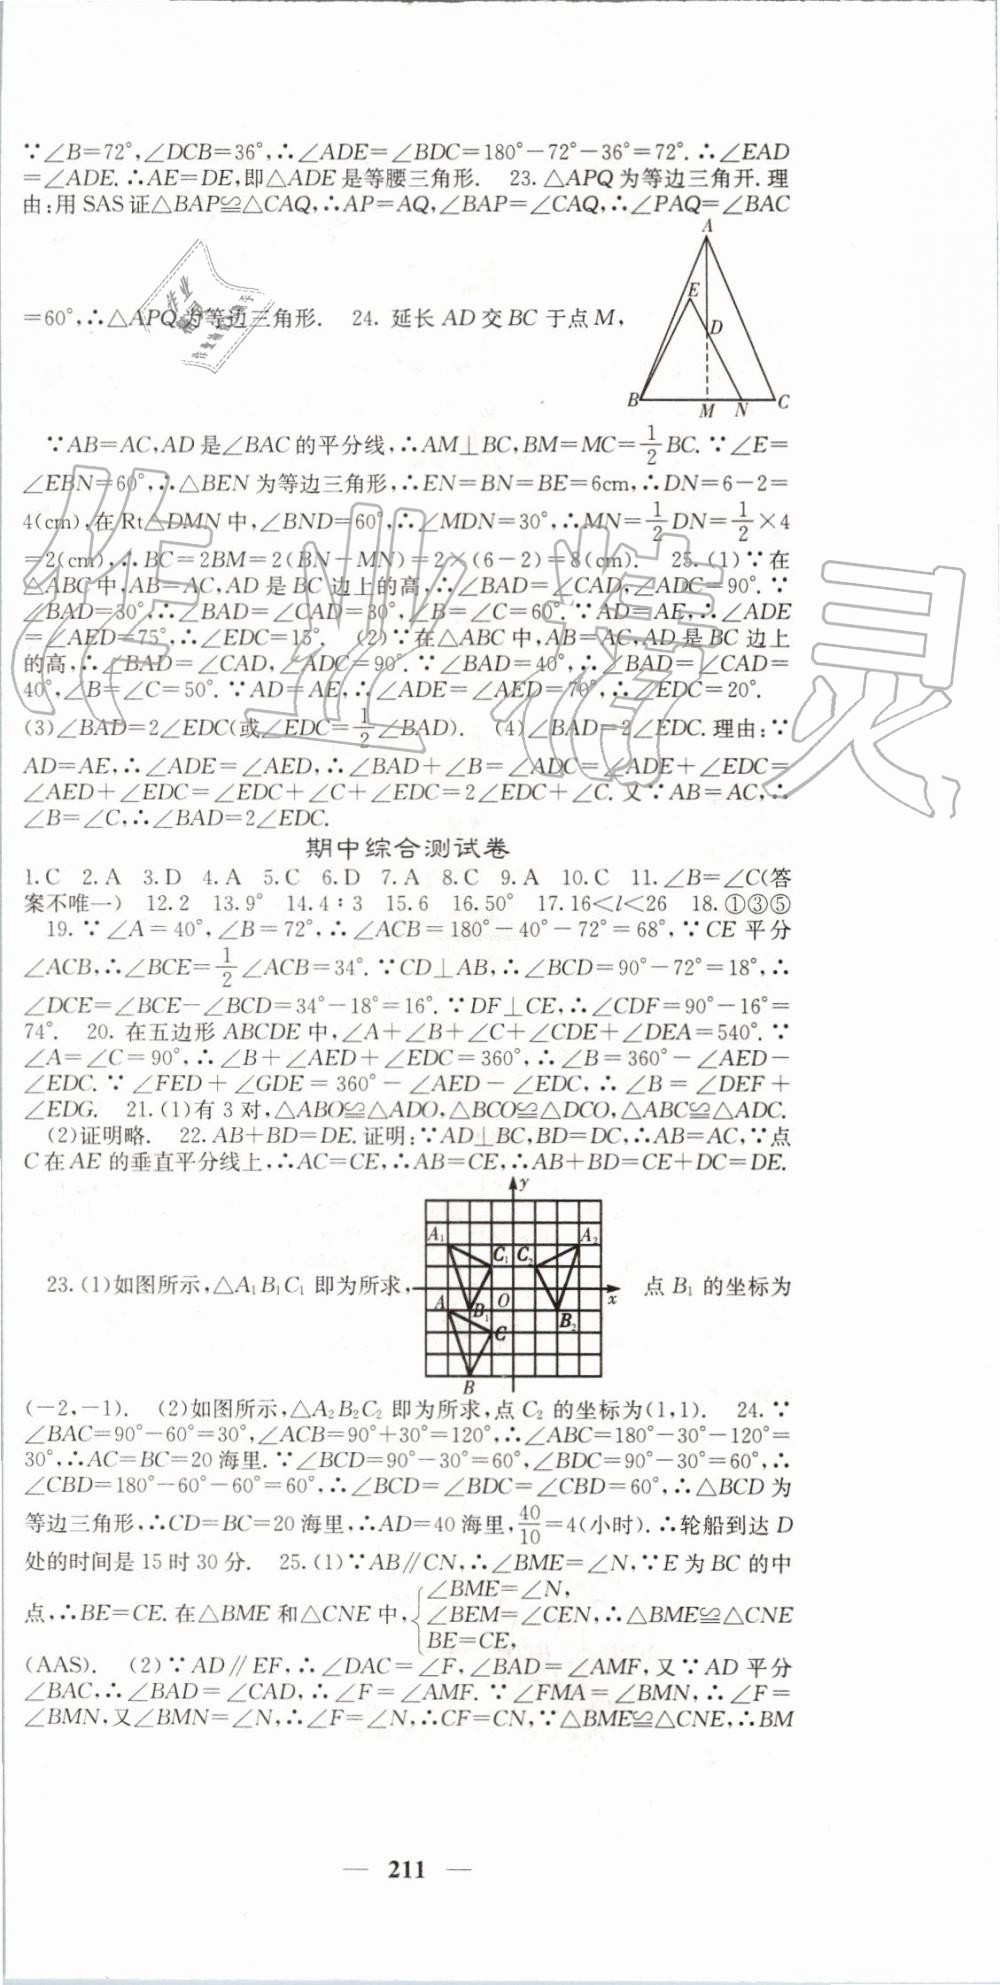 ∵∠B=72°,∠DCB=36°,∴∠ADE=∠BDC=180°-72°-36°=72°.∴∠EAD
=∠ADE.∴AE=DE,即△ADE是等腰三角形. 23.△APQ为等边三角开.理
由:用SAS证△BAP≌△CAQ,∴AP=AQ,∠BAP=∠CAQ,∴∠PAQ=∠BAC
=60°,∴△APQ为等边三角形. 24. 延长AD交BC于点M,
A
E
D
B M N C
∵AB=AC,AD是∠BAC的平分线,∴AM⊥BC,BM=MC=1/2BC.∵∠E=
∠EBN=60°,∴△BEN为等边三角形,∴EN=BN=BE=6cm,∴DN=6-2=
4(cm),在Rt△DMN中,∠BND=60°,∴∠MDN=30°,∴MN=1/2DN=1/2×4
=2(cm),∴BC=2BM=2(BN-MN)=2×(6-2)=8(cm). 25.(1)∵在
△ABC中,AB=AC,AD是BC边上的高,∴∠BAD=∠CAD,∠ADC=90°.∵
∠BAD=30°,∴∠BAD=∠CAD=30°,∠B=∠C=60°.∵AD=AE,∴∠ADE
=∠AED=75°,∴∠EDC=15°. (2)∵在△ABC中,AB=AC,AD是BC边上
的高,∴∠BAD=∠CAD,∠ADC=90°.∵∠BAD=40°,∴∠BAD=∠CAD=
40°,∠B=∠C=50°.∵AD=AE,∴∠ADE=∠AED=70°,∴∠EDC=20°.
(3)∠BAD=2∠EDC(或∠EDC=1/2∠BAD). (4)∠BAD=2∠EDC.理由:∵
AD=AE,∴∠ADE=∠AED,∴∠BAD+∠B=∠ADC=∠ADE+∠EDC=
∠AED+∠EDC=∠EDC+∠C+∠EDC=2∠EDC+∠C.又∵AB=AC,∴
∠B=∠C,∴∠BAD=2∠EDC.
期中综合测试卷
1.C 2.A 3.D 4.A 5.C 6.D 7.A 8.C 9.A 10.C 11.∠B=∠C(答
案不唯一) 12.2 13.9° 14.4∶3 15.6 16.50° 17.16<l<26 18.①③⑤
19.∵∠A=40°,∠B=72°,∴∠ACB=180°-40°-72°=68°,∵CE平分
∠ACB,∴∠BCE=1/2∠ACB=34°.∵CD⊥AB,∴∠BCD=90°-72°=18°,∴
∠DCE=∠BCE-∠BCD=34°-18°=16°.∵DF⊥CE,∴∠CDF=90°-16°=
74°. 20. 在五边形ABCDE中,∠A+∠B+∠C+∠CDE+∠DEA=540°.∵
∠A=∠C=90°,∴∠B+∠AED+∠EDC=360°,∴∠B=360°-∠AED-
∠EDC.∵∠FED+∠GDE=360°-∠AED-∠EDC,∴∠B=∠DEF+
∠EDG. 21.(1)有3对,△ABO≌△ADO,△BCO≌△DCO,△ABC≌△ADC.
(2)证明略. 22.AB+BD=DE.证明:∵AD⊥BC,BD=DC,∴AB=AC,∵点
C在AE的垂直平分线上,∴AC=CE,∴AB=CE,∴AB+BD=CE+DC=DE.
y
A₁ C₁ C₂ A₂
23.(1)如图所示,△A₁B₁C₁即为所求, 点B₁的坐标为
A B₁ O B₂ x
C
B
(-2,-1). (2)如图所示,△A₂B₂C₂即为所求,点C₂的坐标为(1,1). 24.∵
∠BAC=90°-60°=30°,∠ACB=90°+30°=120°,∴∠ABC=180°-30°-120°=
30°,∴AC=BC=20海里.∵∠BCD=90°-30°=60°,∠BDC=90°-30°=60°,∴
∠CBD=180°-60°-60°=60°,∴∠BCD=∠BDC=∠CBD=60°,∴△BCD为
等边三角形,∴CD=BC=20海里,∴AD=40海里,40/10=4(小时).∴轮船到达D
处的时间是15时30分. 25.(1)∵AB∥CN,∴∠BME=∠N,∵E为BC的中
点,∴BE=CE.在△BME和△CNE中,{∠BME=∠N,
∠BEM=∠CEN,∴△BME≌△CNE
BE=CE,
(AAS). (2)∵AD∥EF,∴∠DAC=∠F,∠BAD=∠AMF,又∵AD平分
∠BAC,∴∠BAD=∠CAD,∴∠F=∠AMF.∵∠FMA=∠BMN,∴∠F=
∠BMN,又∠BMN=∠N,∴∠F=∠N,∴CF=CN,∵△BME≌△CNE,∴BM
— 211 —
作业精灵